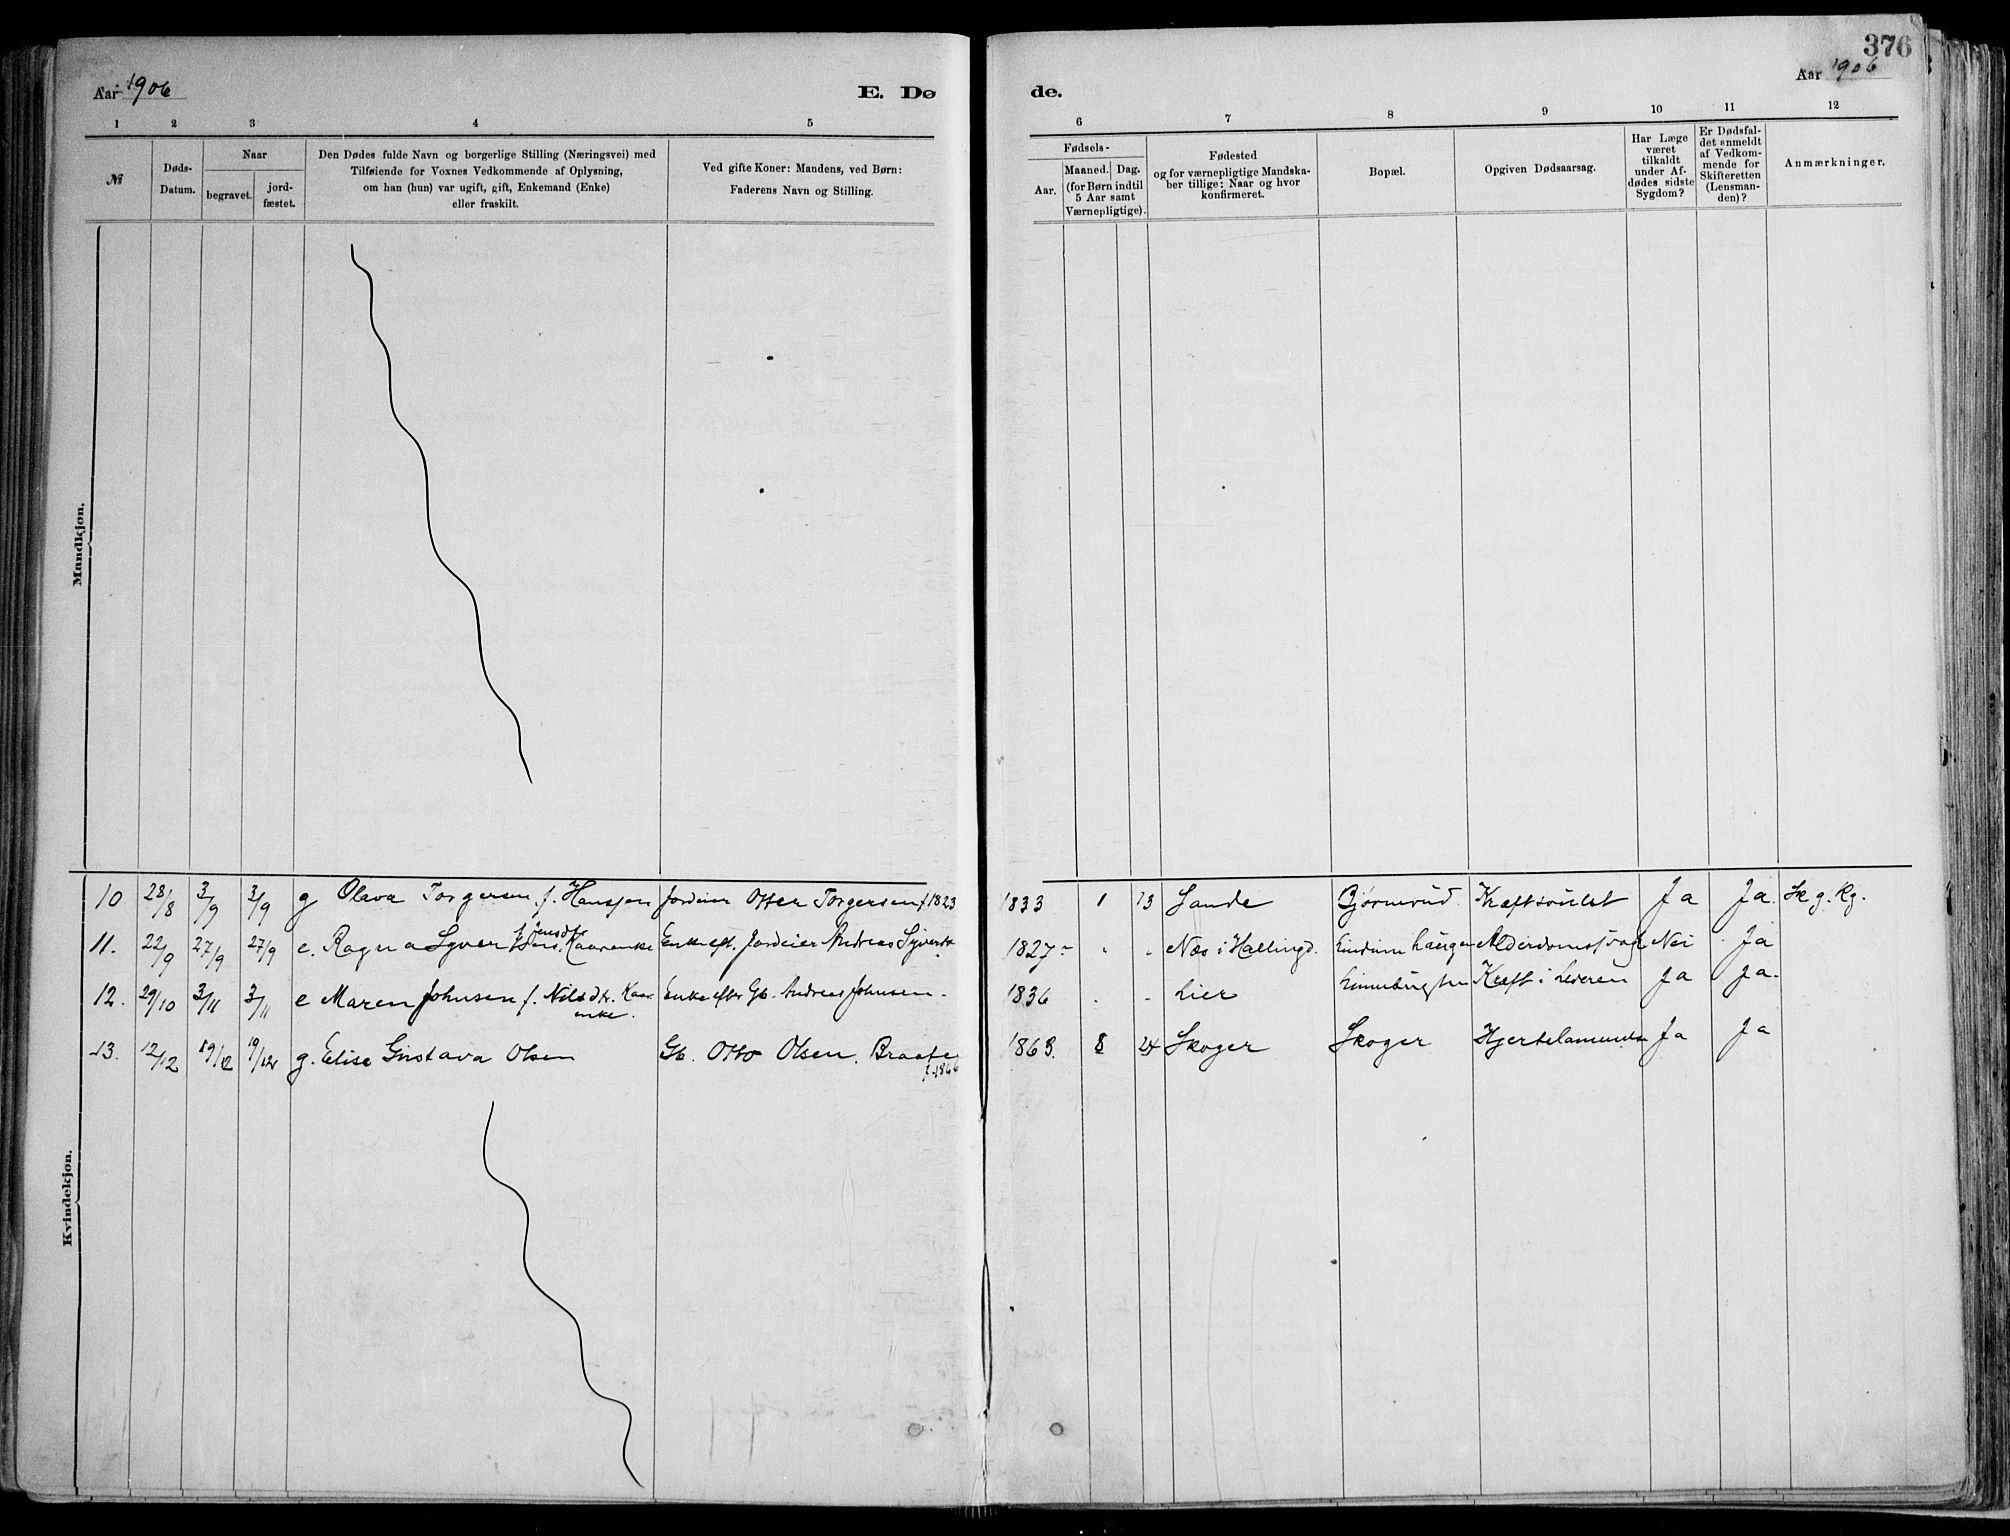 376
Aar 1906
E. Dø
de.
Aar 1906
1 2 3 4 5
6 7 8 9 10 11 12
№
Døds-
Datum.
Naar
begravet.
jord-
fæstet.
Den Dødes fulde Navn og borgerlige Stilling (Næringsvei) med
Tilføiende for Voxnes Vedkommende af Oplysning,
om han (hun) var ugift, gift, Enkemand (Enke)
eller fraskilt.
Ved gifte Koner: Mandens, ved Børn:
Faderens Navn og Stilling.
Fødsels-
Aar.
Maaned. Dag.
(for Børn indtil
5 Aar samt
Værnepligtige).
Fødested
og for værnepligtige Mandska-
ber tillige: Naar og hvor
konfirmeret.
Bopæl.
Opgiven Dødsaarsag.
Har Læge
været
tilkaldt
under Af-
dødes sidste
Sygdom?
Er Dødsfal-
det anmeldt
af Vedkom-
mende for
Skifteretten
(Lensman-
den)?
Anmærkninger.
Mandkjøn.
Kvindekjøn.
10 28/8 3/9 3/9 g Olava Torgersen f. Hansen Jordeier Otter Torgersen f 1823 1833 1 13 Sande Bjørnrud Kræftsvulst Ja Ja. Sk g. Kg.
f. Jensdtr
11. 22/9 27/9 27/9 e. Ragna Syvertsens Kaarenke Enke eft. Jordeier Andreas Syverts. 1827 - - Næs i Hallingd. Alderdomssvagh Nei Ja
12. 29/10 3/11 3/11 e Maren Johnsen f. Nilsdtr. Kaar Enke efter Gb. Andreas Johnsen. 1836 - - Lier Kræft i Leveren Ja Ja.
enke.
13. 12/12 19/12 19/12 g. Elise Gustava Olsen Gb. Otto Olsen. Braate 1863. 8 24 Skoger Skoger Hjertelammelse Ja Ja
f. 1866